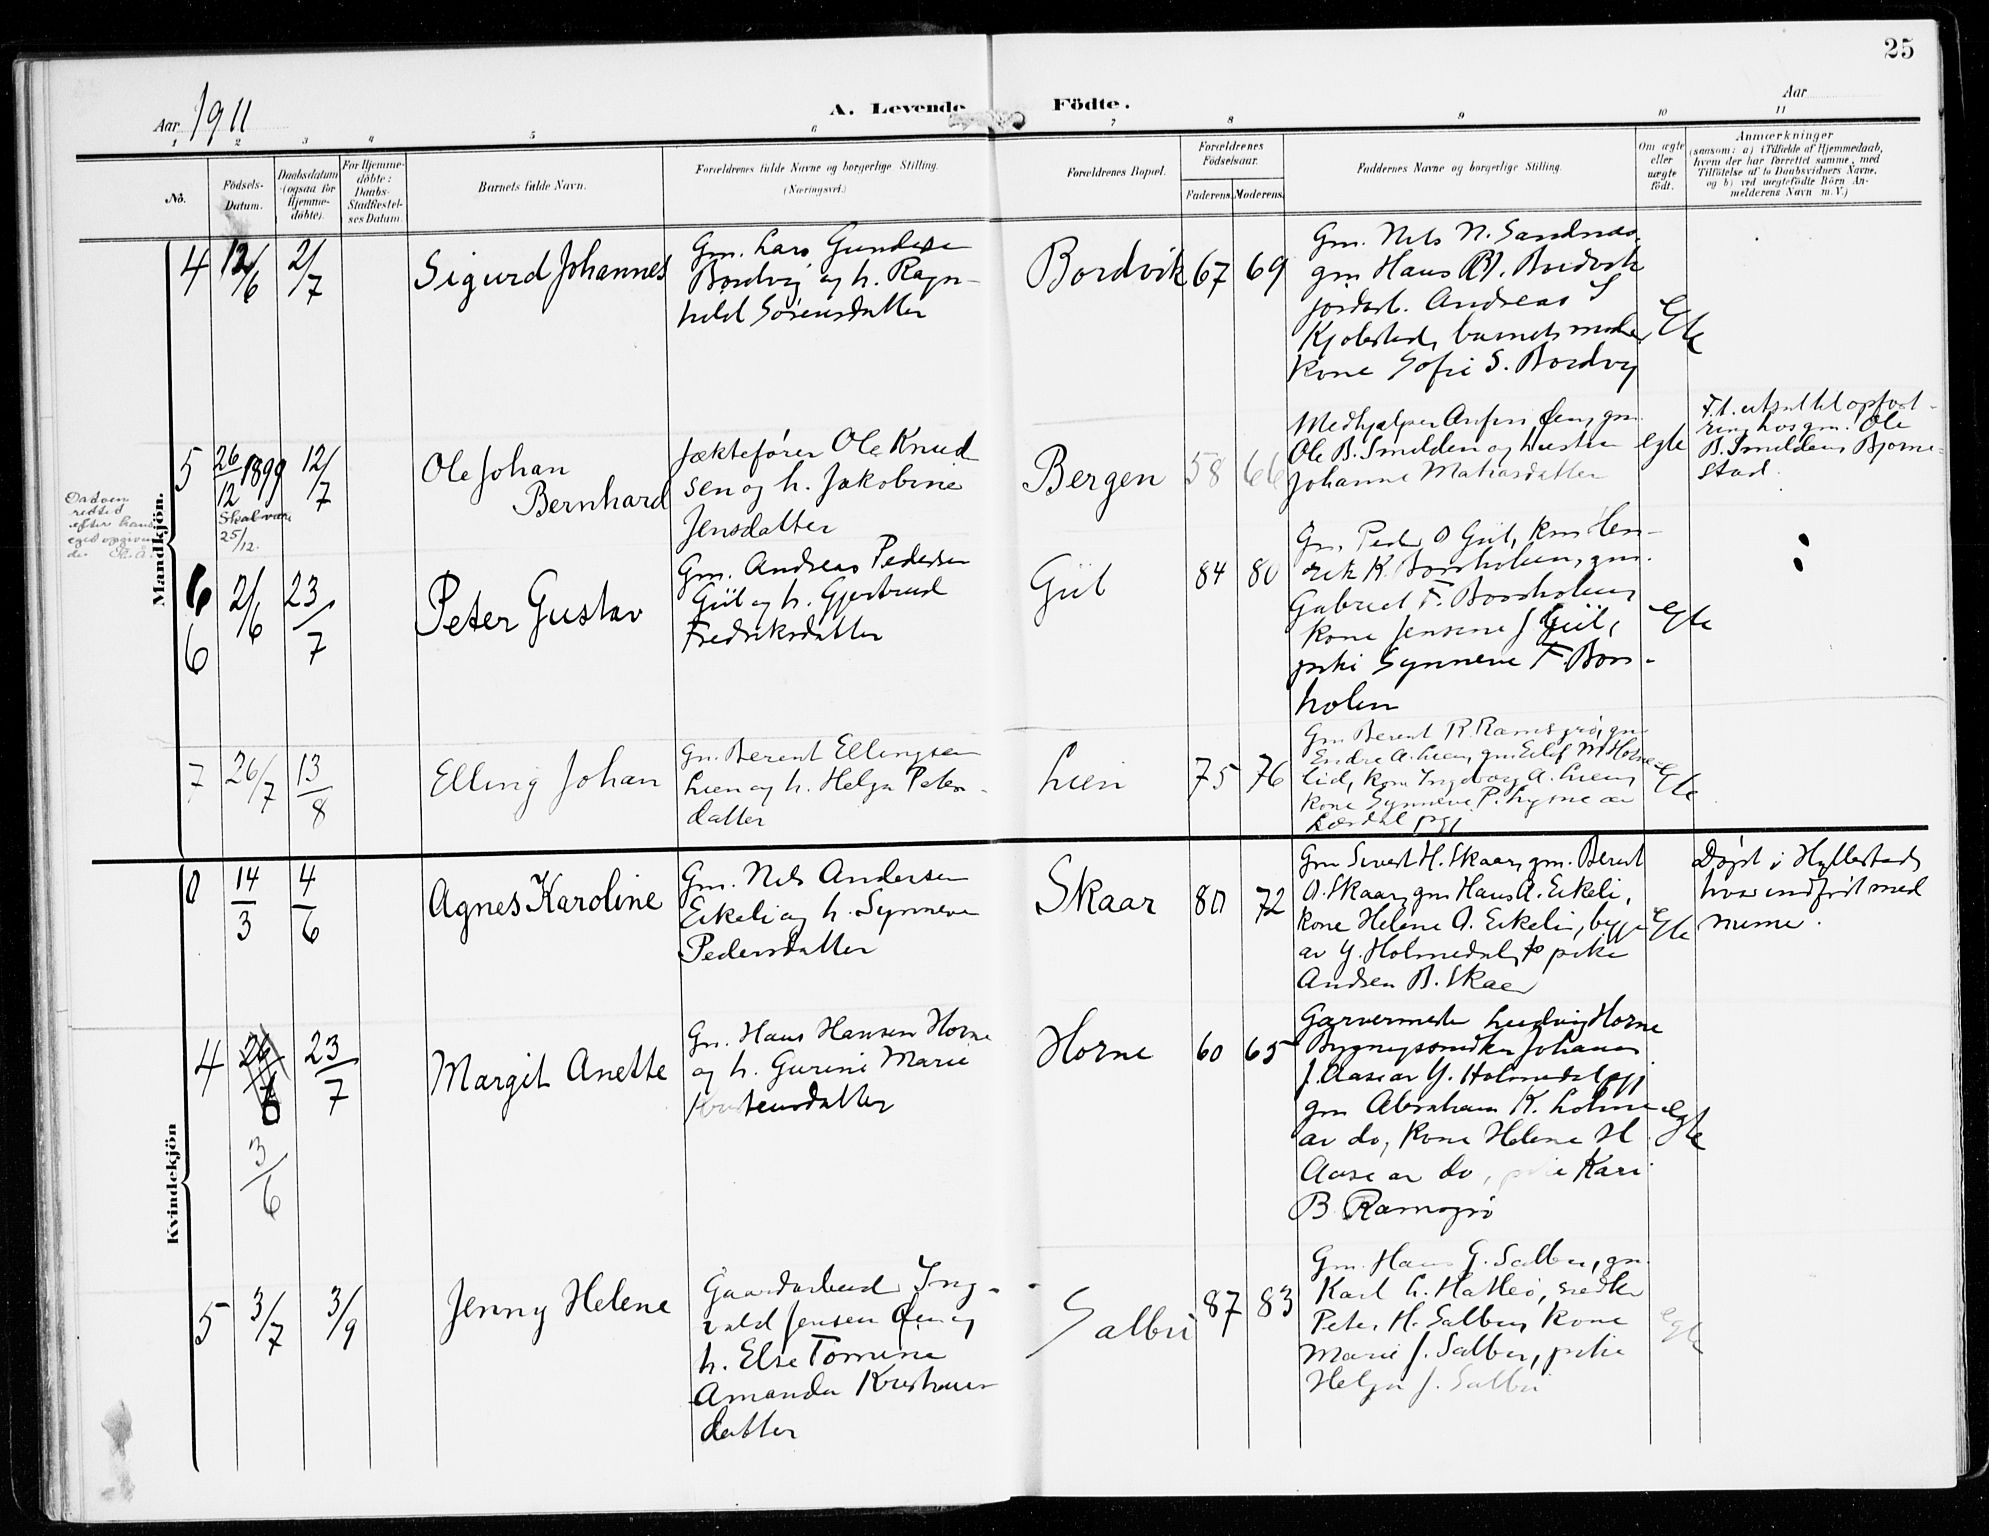 25
Aar 1911
A. Levende Födte.
Aar
1 2 3 4 5 6 7 8 9 10 11
No.
Födsels-
Datum.
Daabsdatum
(ogsaa for
Hjemme-
döbte).
For Hjemme-
döbte:
Daabs-
Stadfestel-
ses Datum.
Barnets fulde Navn.
Forældrenes fulde Navne og borgerlige Stilling.
(Næringsvei.)
Forældrenes Bopæl.
Forældrenes
Födselsaar.
Faderens. Moderens.
Faddernes Navne og borgerlige Stilling.
Om ægte
eller
uægte
födt.
Anmærkninger
(saasom: a) i Tilfælde af Hjemmedaab,
hvem der har forrettet samme, med
Tilföielse af to Daabsvidners Navne,
og b) ved uægtefödte Börn An-
melderens Navn m. V.)
Mandkjön.
4 12/6 2/7
Sigurd Johannes
Gm. Lars Gundersen
Bordvig og h. Ragn-
hild Sörensdatter
Bordvik 67 69
Gm. Nils N. Sandnes
gm Hans Bordvik
Andreas S
Kjolestad, barnets moder
kone Sofie S. Bordvig
Egte
5 26/12 1899 12/7
Skal være
25/12.
efter hans
eget opgiven
Ole Johan
Bernhard
Jæktefører Ole Knud
sen og h. Jakobine
Jensdatter
Bergen 58 66
Medhjælper gm.
Ole B. Smelden og hustru
Johanne Matiasdatter
egte
F.t. utsat til opfost-
ring hos gm. Ole
B. Smelden, Bjorne-
stad.
6 2/6 23/7
6
Peter Gustav
Gm. Andreas Pedersen
Giil og h. Gjertrud
Fredriksdatter
Giil 84 80
Gm. Peder O Giil, km Hen-
rik K. Borsholm, gm.
Gabriel F. Borsholm,
kone Jensine J Giil,
pike Synneve F. Bors-
holm
Egte
7 26/7 13/8
Elling Johan
Gm. Berent Ellingsen
Lien og h. Helga Peters-
datter
Lien 75 76
Gm. Berent R. Ramsgrø, gm.
Endre A. Lien, gm. Eilif M Horne-
lid, kone Ingeborg A. Lien,
kone Synneve P. Lysne av
Lærdal pgj
Egte
Kvindekjön
0 14/3 4/6
Agnes Karoline
Gm. Nils Andersen
Eikeli og h. Synneve
Pedersdatter
Skaar 80 72
Gm Sivert H. Skaar, gm. Berent
O. Skaar, gm Hans A. Eikeli,
kone Helene A. Eikeli, begge
av Y. Holmedal, pike
B. Skaar
Egte
Døpt i Hyllestad,
hvor indført med
numer.
4 23/7
3/6
Margit Anette
Gm. Hans Hansen Horne
og h. Gurine Marie
Kristensdatter
Horne 60 65
Garvermester Ludvig Horne
Bygningssnedker Johannes
J. Aase av Y. Holmedal pgj
gm Abraham K. Lolm
av do, kone Helene H
Aase av do, pike Kari
B. Ramsgrø
Egte
5 3/7 3/9
Jenny Helene
Gaardarbeid. Ing-
vald Jensen Øen og
h. Else Tomine
Amanda Kristians
datter
Salbu 87 83
Gm. Hans G. Salbu, gm.
Karl L. Hatlø, snedker
Peter H. Salbu, kone
Marie J. Salbu, pike
Helga J. Salbu
Egte